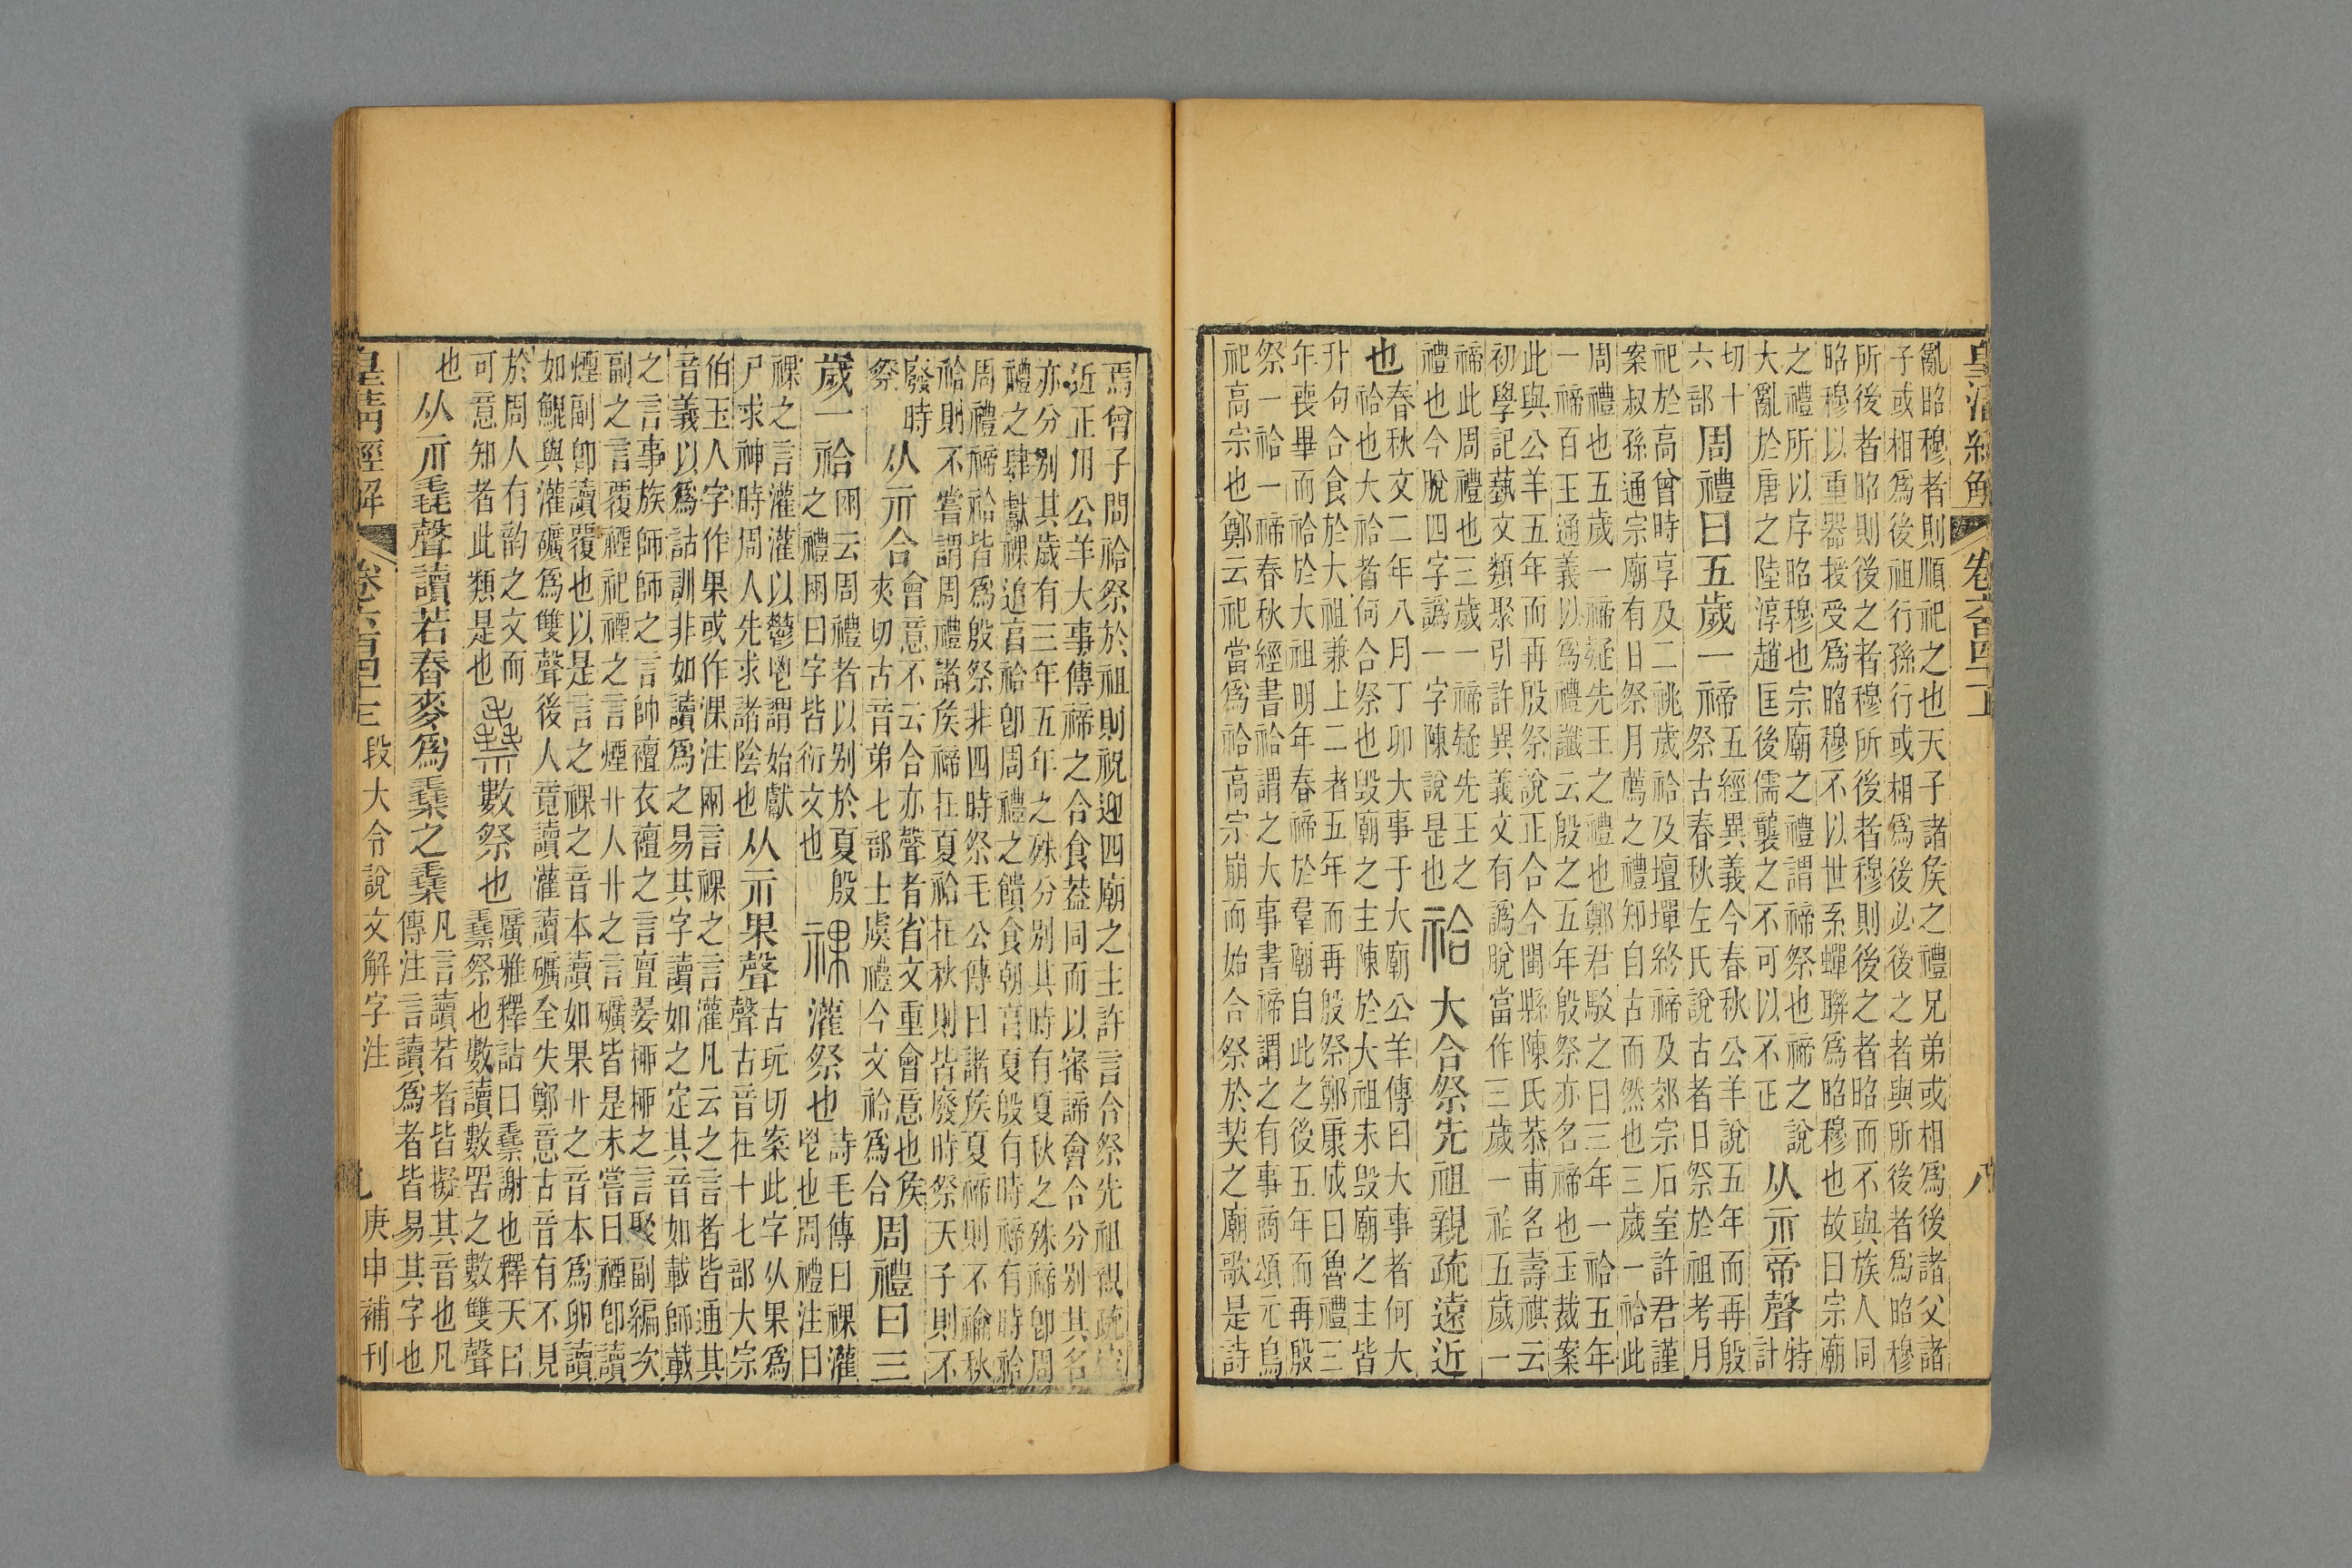 皇清經解 卷六百四十一上 八
亂昭穆者則順祀之也天子諸矦之禮兄弟或相爲後諸父諸
子或相爲後祖行孫行或相爲後必後之者與所後者爲昭穆
所後者昭則後之者穆所後者穆則後之者昭而不與族人同
昭穆以重器授受爲昭穆不以世系蟬聯爲昭穆也故曰宗廟
之禮所以序昭穆也宗廟之禮謂禘祭也禘之說
大亂於唐之陸淳趙匡後儒襲之不可以不正
从示帝聲
特計
切十
六部
周禮曰五歲一禘
五經異義今春秋公羊說五年而再殷
祭古春秋左氏說古者日祭於祖考月
祀於高曾時享及二祧歲祫及壇墠終禘及郊宗石室許君謹
案叔孫通宗廟有日祭月薦之禮知自古而然也三歲一祫此
周禮也五歲一禘疑先王之禮也鄭君駁之曰三年一祫五年
一禘百王通義以爲禮讖云殷之五年殷祭亦名禘也玉裁案
此與公羊五年而再殷祭說正合今閩縣陳氏恭甫名壽祺云
初學記藝文類聚引許異義文有譌脫當作三歲一祫五歲一
禘此周禮也三歲一禘疑先王之
禮也今脫四字譌一字陳說是也
祫
大合祭先祖親疏遠近
也
春秋文二年八月丁卯大事于大廟公羊傳曰大事者何大
祫也大祫者何合祭也毀廟之主陳於大祖未毀廟之主皆
升句合食於大祖兼上二者五年而再殷祭鄭康成曰魯禮三
年喪畢而祫於大祖明年春禘於羣廟自此之後五年而再殷
祭一祫一禘春秋經書祫謂之大事書禘謂之有事商頌元鳥
祀高宗也鄭云祀當爲祫高宗崩而始合祭於契之廟歌是詩
焉曾子問祫祭於祖則祝迎四廟之主許言合祭先祖親疏
近正用公羊大事傳禘之合食葢同而以審諦會合分别其名
亦分别其歲有三年五年之殊分别其時有夏秋之殊禘卽周
禮之肆獻祼追享祫卽周禮之饋食朝享夏殷有時禘有時祫
周禮禘祫皆爲殷祭非四時祭毛公傳曰諸矦夏禘則不禴秋
祫則不嘗謂周禮諸矦禘在夏祫在秋則皆廢時祭天子則不
廢時
祭
从示合
會意不云合亦聲者省文重會意也矦
夾切古音弟七部士虞禮今文祫爲合
周禮曰三
歲一祫
兩云周禮者以别於夏殷
之禮兩曰字皆衍文也
祼
灌祭也
詩毛傳曰祼灌
鬯也周禮注曰
祼之言灌灌以鬱鬯謂始獻
尸求神時周人先求諸陰也
从示果聲
古玩切案此字从果爲
聲古音在十七部大宗
伯玉人字作果或作淉注兩言祼之言灌凡云之言者皆通其
音義以爲詁訓非如讀爲之易其字讀如之定其音如載師載
之言事族師師之言帥襢衣襢之言亶翣柳柳之言聚副編次
副之言覆禋祀禋之言煙丱人丱之言礦皆是未嘗曰禋卽讀
煙副卽讀覆也以是言之祼之音本讀如果丱之音本爲卵讀
如鯤與灌礦爲雙聲後人竟讀灌讀礦全失鄭意古音有不見
於周人有韵之文而
可意知者此類是也
數祭也
廣雅釋詁曰𥜒謝也釋天曰
𥜒祭也數讀數罟之數雙聲
也
从示毳聲讀若舂麥爲𣯍之𣯍
凡言讀若者皆擬其音也凡
傳注言讀爲者皆易其字也
皇清經解 卷六百四十一上 段大令說文解字注 九 庚申補刊